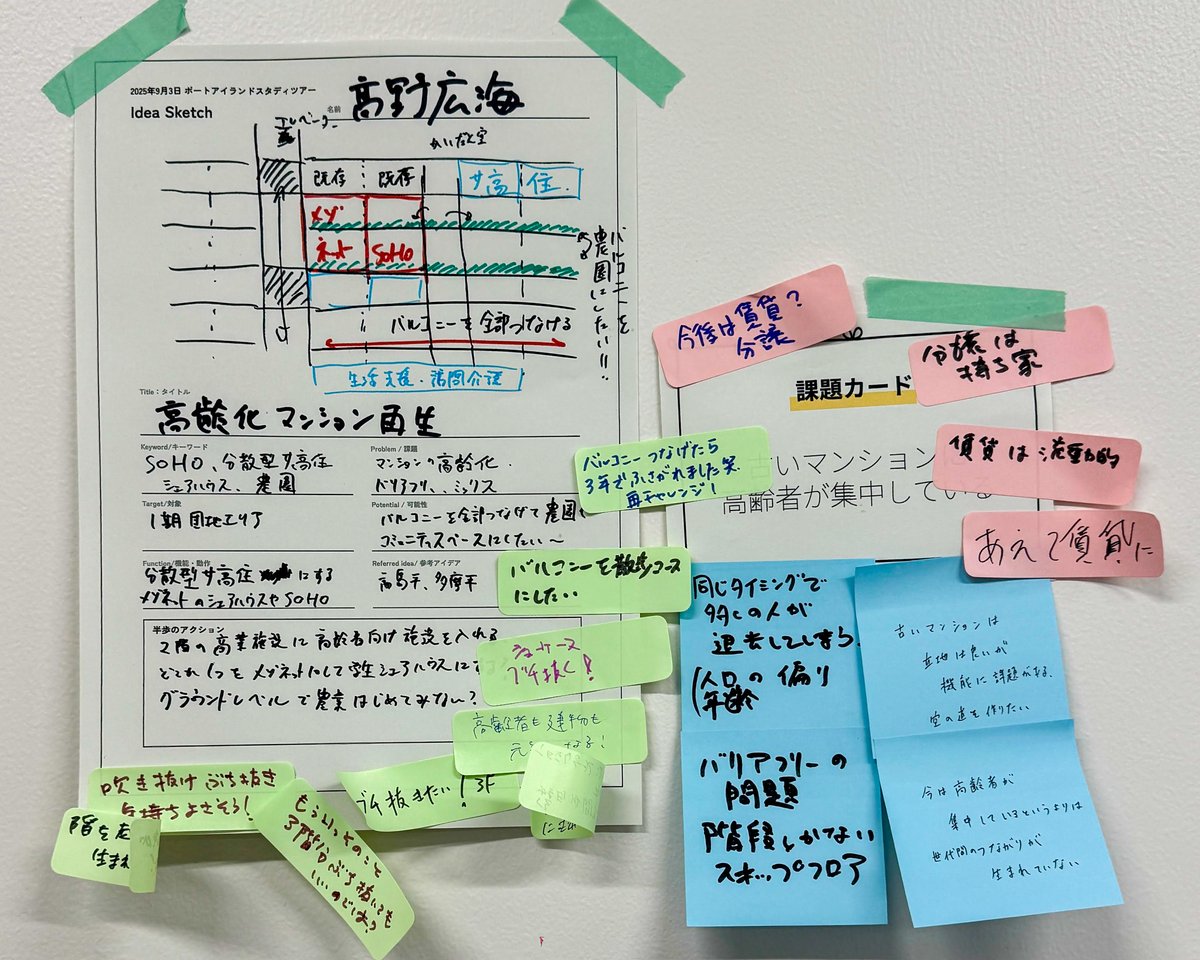 2025年9月3日 ポートアイランドスタディツアー
Idea Sketch
名前
高野広海
エレベーター
かいだん室
既存
既存
サ高住
メゾ
ネット
SOHO
バルコニーを
農園にしたい!!
バルコニーを全部つなげる
生活支援・訪問介護
Title:タイトル
高齢化マンション再生
Keyword/キーワード
SOHO、分散型サ高住
シェアハウス、農園
Problem / 課題
マンションの高齢化
バリアフリ、、ミックス
Target/対象
1期団地エリア
Potential / 可能性
バルコニーを全部つなげて農園
コミュニティスペースにしたい〜
Function/機能・動作
分散型サ高住にする
メゾネットのシェアハウスやSOHO
Referred idea/ 参考アイデア
高島平、多摩平
半歩のアクション
2階の商業施設に高齢者向け施設を入れる
どこか1つをメゾネットにして学生シェアハウスに
グラウンドレベルで農業はじめてみない?
バルコニーつなげたら
3年でふさがれました笑
再チャレンジ!
バルコニーを散歩コース
にしたい・・
ブチ抜く!
高齢者も建物も
元
吹き抜けぶち抜き
気持ちよさそう!
階を
生まれ
もういっそのこと
3階分ぶち抜いても
いいのでは?
ブチ抜きたい! 3F
今後は賃貸?
分譲
分譲は
持ち家
課題カード
賃貸は流動的
古いマンション
高齢者が集中している
あえて賃貸に
同じタイミングで
多くの人が
退去してしまう
人口の偏り
年齢
古いマンションは
立地は良いが
機能に課題がある、
空の道を作りたい
バリアフリーの
問題
階段しかない
スキップフロア
今は高齢者が
集中しているというよりは
世代間のつながりが
生まれていない